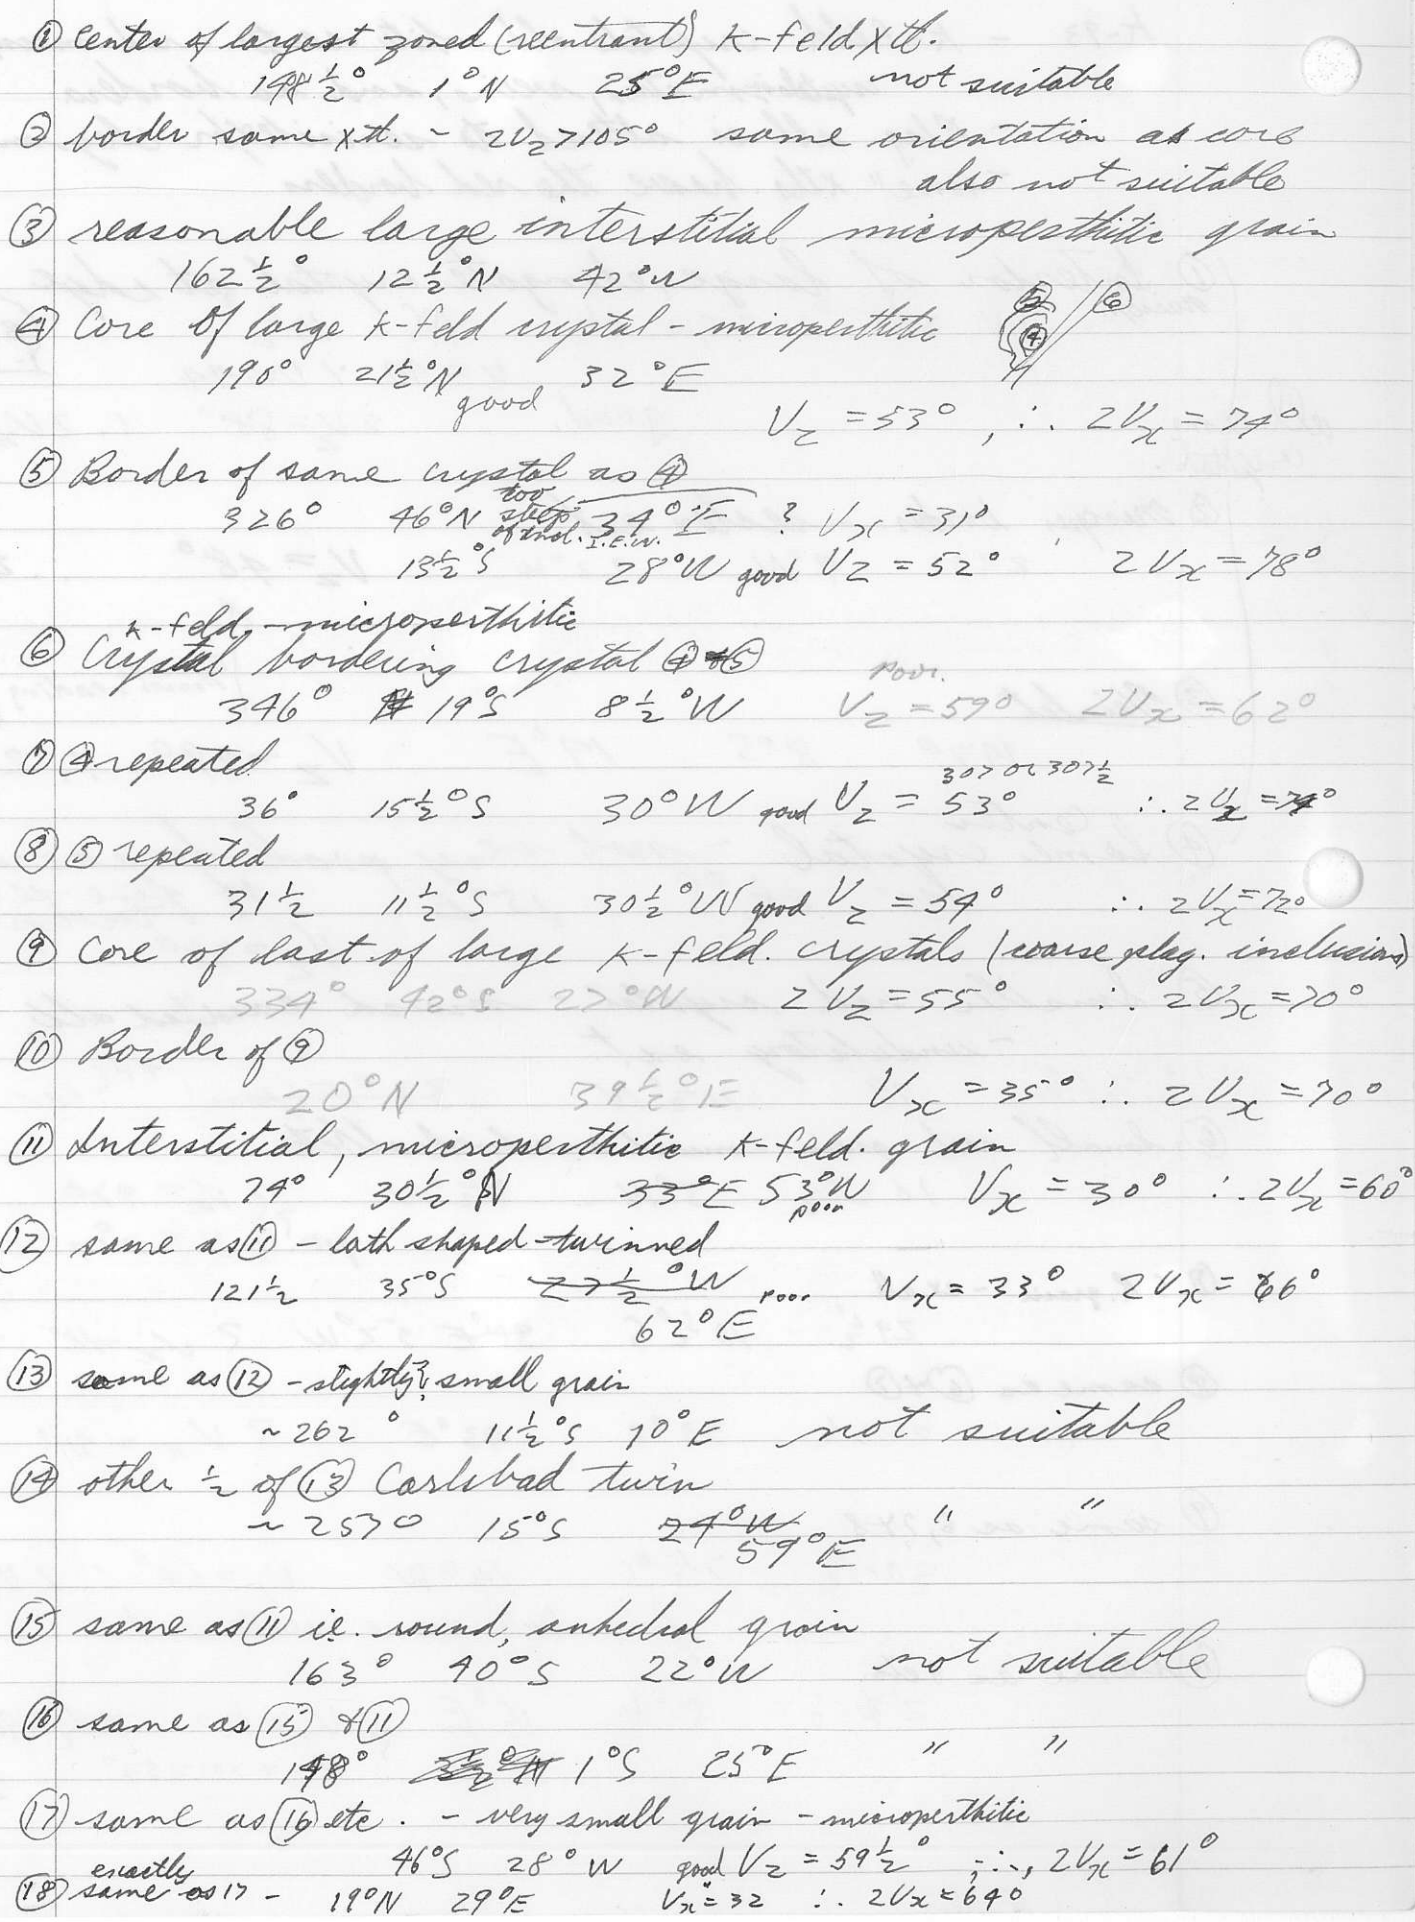 ① Center of largest zoned (reentrant) K-feld xtl.
148½° 1°N 25°E not suitable
② border same xtl. - 2Vz>105° same orientation as core
also not suitable
③ reasonable large interstitial microperthitic grain
162½° 12½°N 42°W
⑤ ⑥
④ Core of large K-feld crystal - microperthitic
④
190° 21½°N 32°E
good
Vz = 53°, ∴ 2Vx = 74°
⑤ Border of same crystal as ④
too
326° 46°N steep 34°E ? Vx = 31°
of incl. I.E.W.
13½°S 28°W good Vz = 52° 2Vx = 78°
K-feld. - microperthitic
⑥ Crystal bordering crystal ④ + ⑤
poor.
346° 19°S 8½°W Vz = 59° 2Vx = 62°
⑦ ④ repeated
307 or 307½
36° 15½°S 30°W good Vz = 53° ∴ 2Vx = 74°
⑧ ⑤ repeated
31½ 11½°S 30½°W good Vz = 54° ∴ 2Vx = 72°
⑨ Core of last of large K-feld. crystals (coarse plag. inclusions)
334° 42°S 27°W 2Vz = 55° ∴ 2Vx = 70°
⑩ Border of ⑨
20°N 39½°E Vx = 35° ∴ 2Vx = 70°
⑪ Interstitial, microperthitic K-feld. grain
74° 30½°N 33°E 53°W Vx = 30° ∴ 2Vx = 60°
poor
⑫ same as ⑪ - lath shaped - twinned
121½ 35°S 27½°W poor Vx = 33° 2Vx = 66°
62°E
⑬ same as ⑫ - slightly? small grain
~262° 11½°S 10°E not suitable
⑭ other ½ of ⑬ Carlsbad twin
~257° 15°S 24°W " "
59°E
⑮ same as ⑪ i.e. round, anhedral grain
163° 40°S 22°W not suitable
⑯ same as ⑮ & ⑪
148° 1°S 25°E " "
⑰ same as ⑯ etc. - very small grain - microperthitic
46°S 28°W good Vz = 59½°, ∴, 2Vx = 61°
exactly
⑱ same as 17 - 19°N 29°E Vx = 32 ∴ 2Vx = 64°